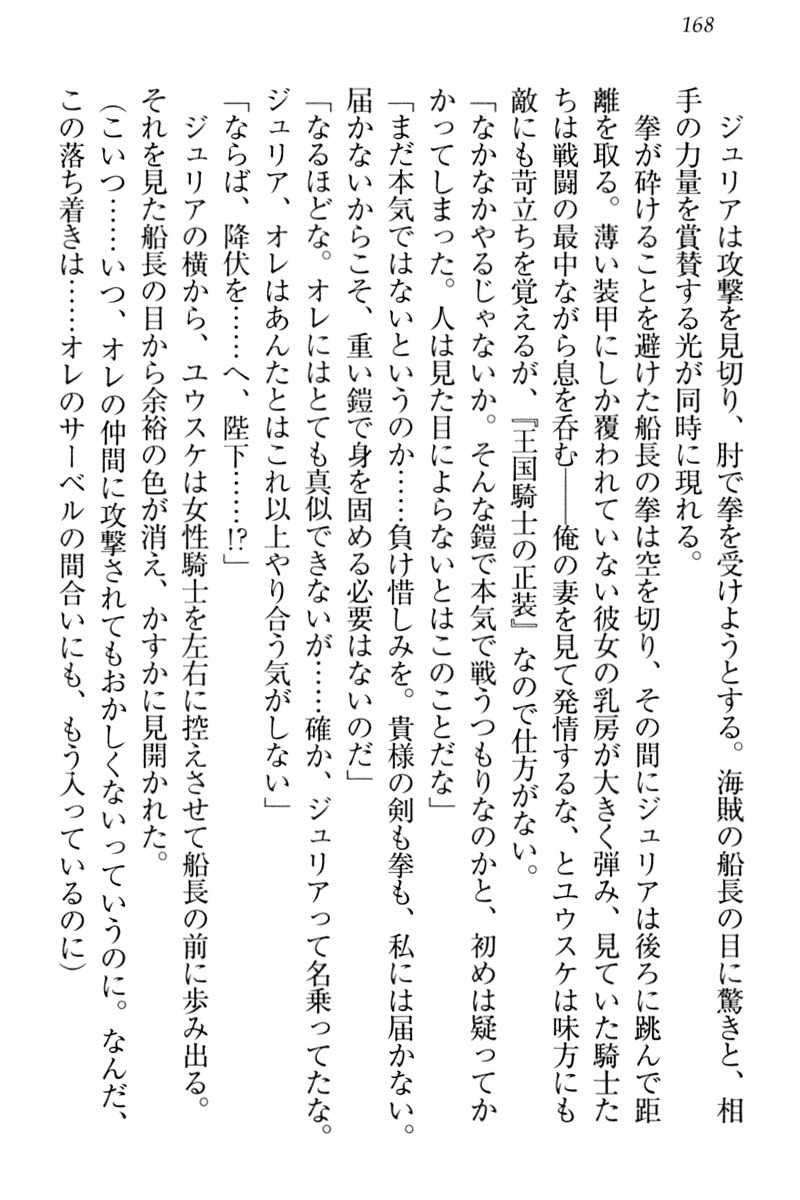 168
ジュリアは攻撃を見切り、肘で拳を受けようとする。海賊の船長の目に驚きと、相
手の力量を賞賛する光が同時に現れる。
拳が砕けることを避けた船長の拳は空を切り、その間にジュリアは後ろに跳んで距
離を取る。薄い装甲にしか覆われていない彼女の乳房が大きく弾み、見ていた騎士た
ちは戦闘の最中ながら息を呑む――俺の妻を見て発情するな、とユウスケは味方にも
敵にも苛立ちを覚えるが、『王国騎士の正装』なので仕方がない。
「なかなかやるじゃないか。そんな鎧で本気で戦うつもりなのかと、初めは疑ってか
かってしまった。人は見た目によらないとはこのことだな」
「まだ本気ではないというのか……負け惜しみを。貴様の剣も拳も、私には届かない。
届かないからこそ、重い鎧で身を固める必要はないのだ」
「なるほどな。オレにはとても真似できないが……確か、ジュリアって名乗ってたな。
ジュリア、オレはあんたとはこれ以上やり合う気がしない」
「ならば、降伏を……へ、陛下……!?」
ジュリアの横から、ユウスケは女性騎士を左右に控えさせて船長の前に歩み出る。
それを見た船長の目から余裕の色が消え、かすかに見開かれた。
(こいつ……いつ、オレの仲間に攻撃されてもおかしくないっていうのに。なんだ、
この落ち着きは……オレのサーベルの間合いにも、もう入っているのに)